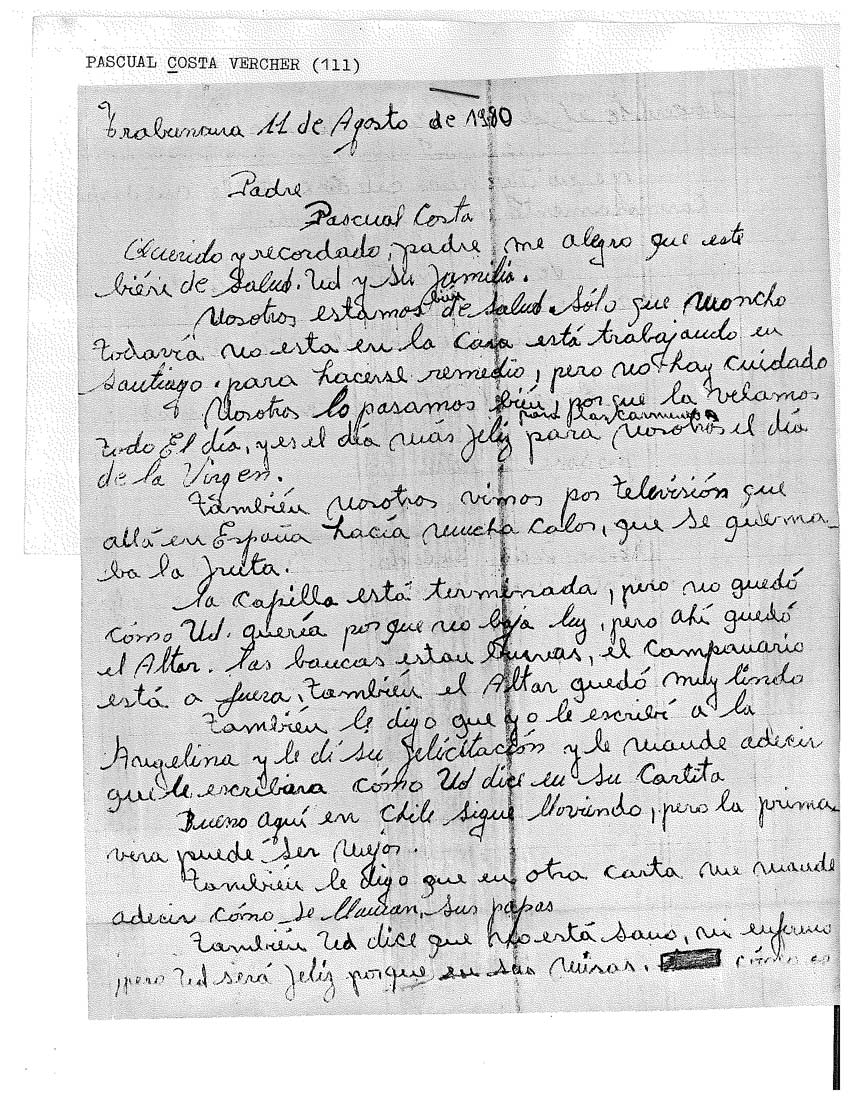 PASCUAL COSTA VERCHER (111)
Trabunana 11 de Agosto de 1980
Padre
Pascual Costa
Querido y recordado, padre me alegro que este
bién de salud. Ud y su familia.
Nosotros estamos bién de salud. Sólo que Moncho
todavía no esta en la casa está trabajando en
Santiago. para hacerse remedio, pero no hay cuidado
Nosotros lo pasamos bién, porque la velamos
para las
todo El día, y es el día más feliz para nosotros el día
de la Virgen.
También nosotros vimos por televisión que
allá en España hacía mucha calor, que se quema_
ba la fruta.
la capilla está terminada, pero no quedó
cómo Ud. quería porque no baja luz, pero ahí quedó
el Altar. las bancas estan buenas, el campanario
está a fuera. También el Altar quedó muy lindo
También le digo que yo le escribí a la
Angelina y le dí su felicitación y le mande adecir
que le escribiera cómo Ud dice en su Cartita
Bueno aquí en Chile sigue lloviendo, pero la prima_
vera puede ser mejor.
También le digo que en otra carta me mande
adecir cómo se llaman sus papas
También Ud dice que no está sano, ni enfermo
pero Ud será feliz porque en sus misas. cómo